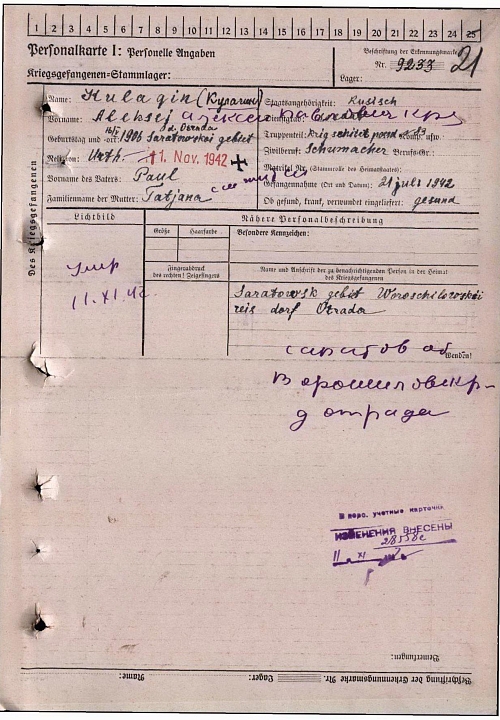 1 2 3 4 5 6 7 8 9 10 11 12 13 14 15 16 17 18 19 20 21 22 23 24 25
Personalkarte I: Personelle Angaben
Kriegsgefangenen-Stammlager:
Beschriftung der Erkennungsmarke
Nr. 9233 21
Lager:
Des Kriegsgefangenen
Name: Kulagin (Кулагин)
Staatsangehörigkeit: Rusisch
Vorname: Aleksej Алексей Павлович кр
Dienstgrad:
Geburtstag und -ort: 16/II 1906 d. Otrada Saratowskoi gebit
Truppenteil: usw.
Religion: Orth. 11. Nov. 1942
Zivilberuf: Schumacher Berufs-Gr.:
Matrikel Nr. (Stammrolle des Heimatstaates):
Vorname des Vaters: Paul
Gefangennahme (Ort und Datum): 21 juli 1942
Familienname der Mutter: Tatjana
Ob gesund, krank, verwundet eingeliefert: gesund
Lichtbild
Nähere Personalbeschreibung
Größe
Haarfarbe
Besondere Kennzeichen:
Fingerabdruck
des rechten! Zeigefingers
Name und Anschrift der zu benachrichtigenden Person in der Heimat
des Kriegsgefangenen
умер
11.XI.42
Saratowsk gebit Woroschilowskói
reis dorf Otrada
Wenden!
саратов об
Ворошиловск р-
д отрада
В перс. учетные карточки
ИЗМЕНЕНИЯ ВНЕСЕНЫ
Bemerkungen:
Beschriftung der Erkennungsmarke Nr. Lager: Name: